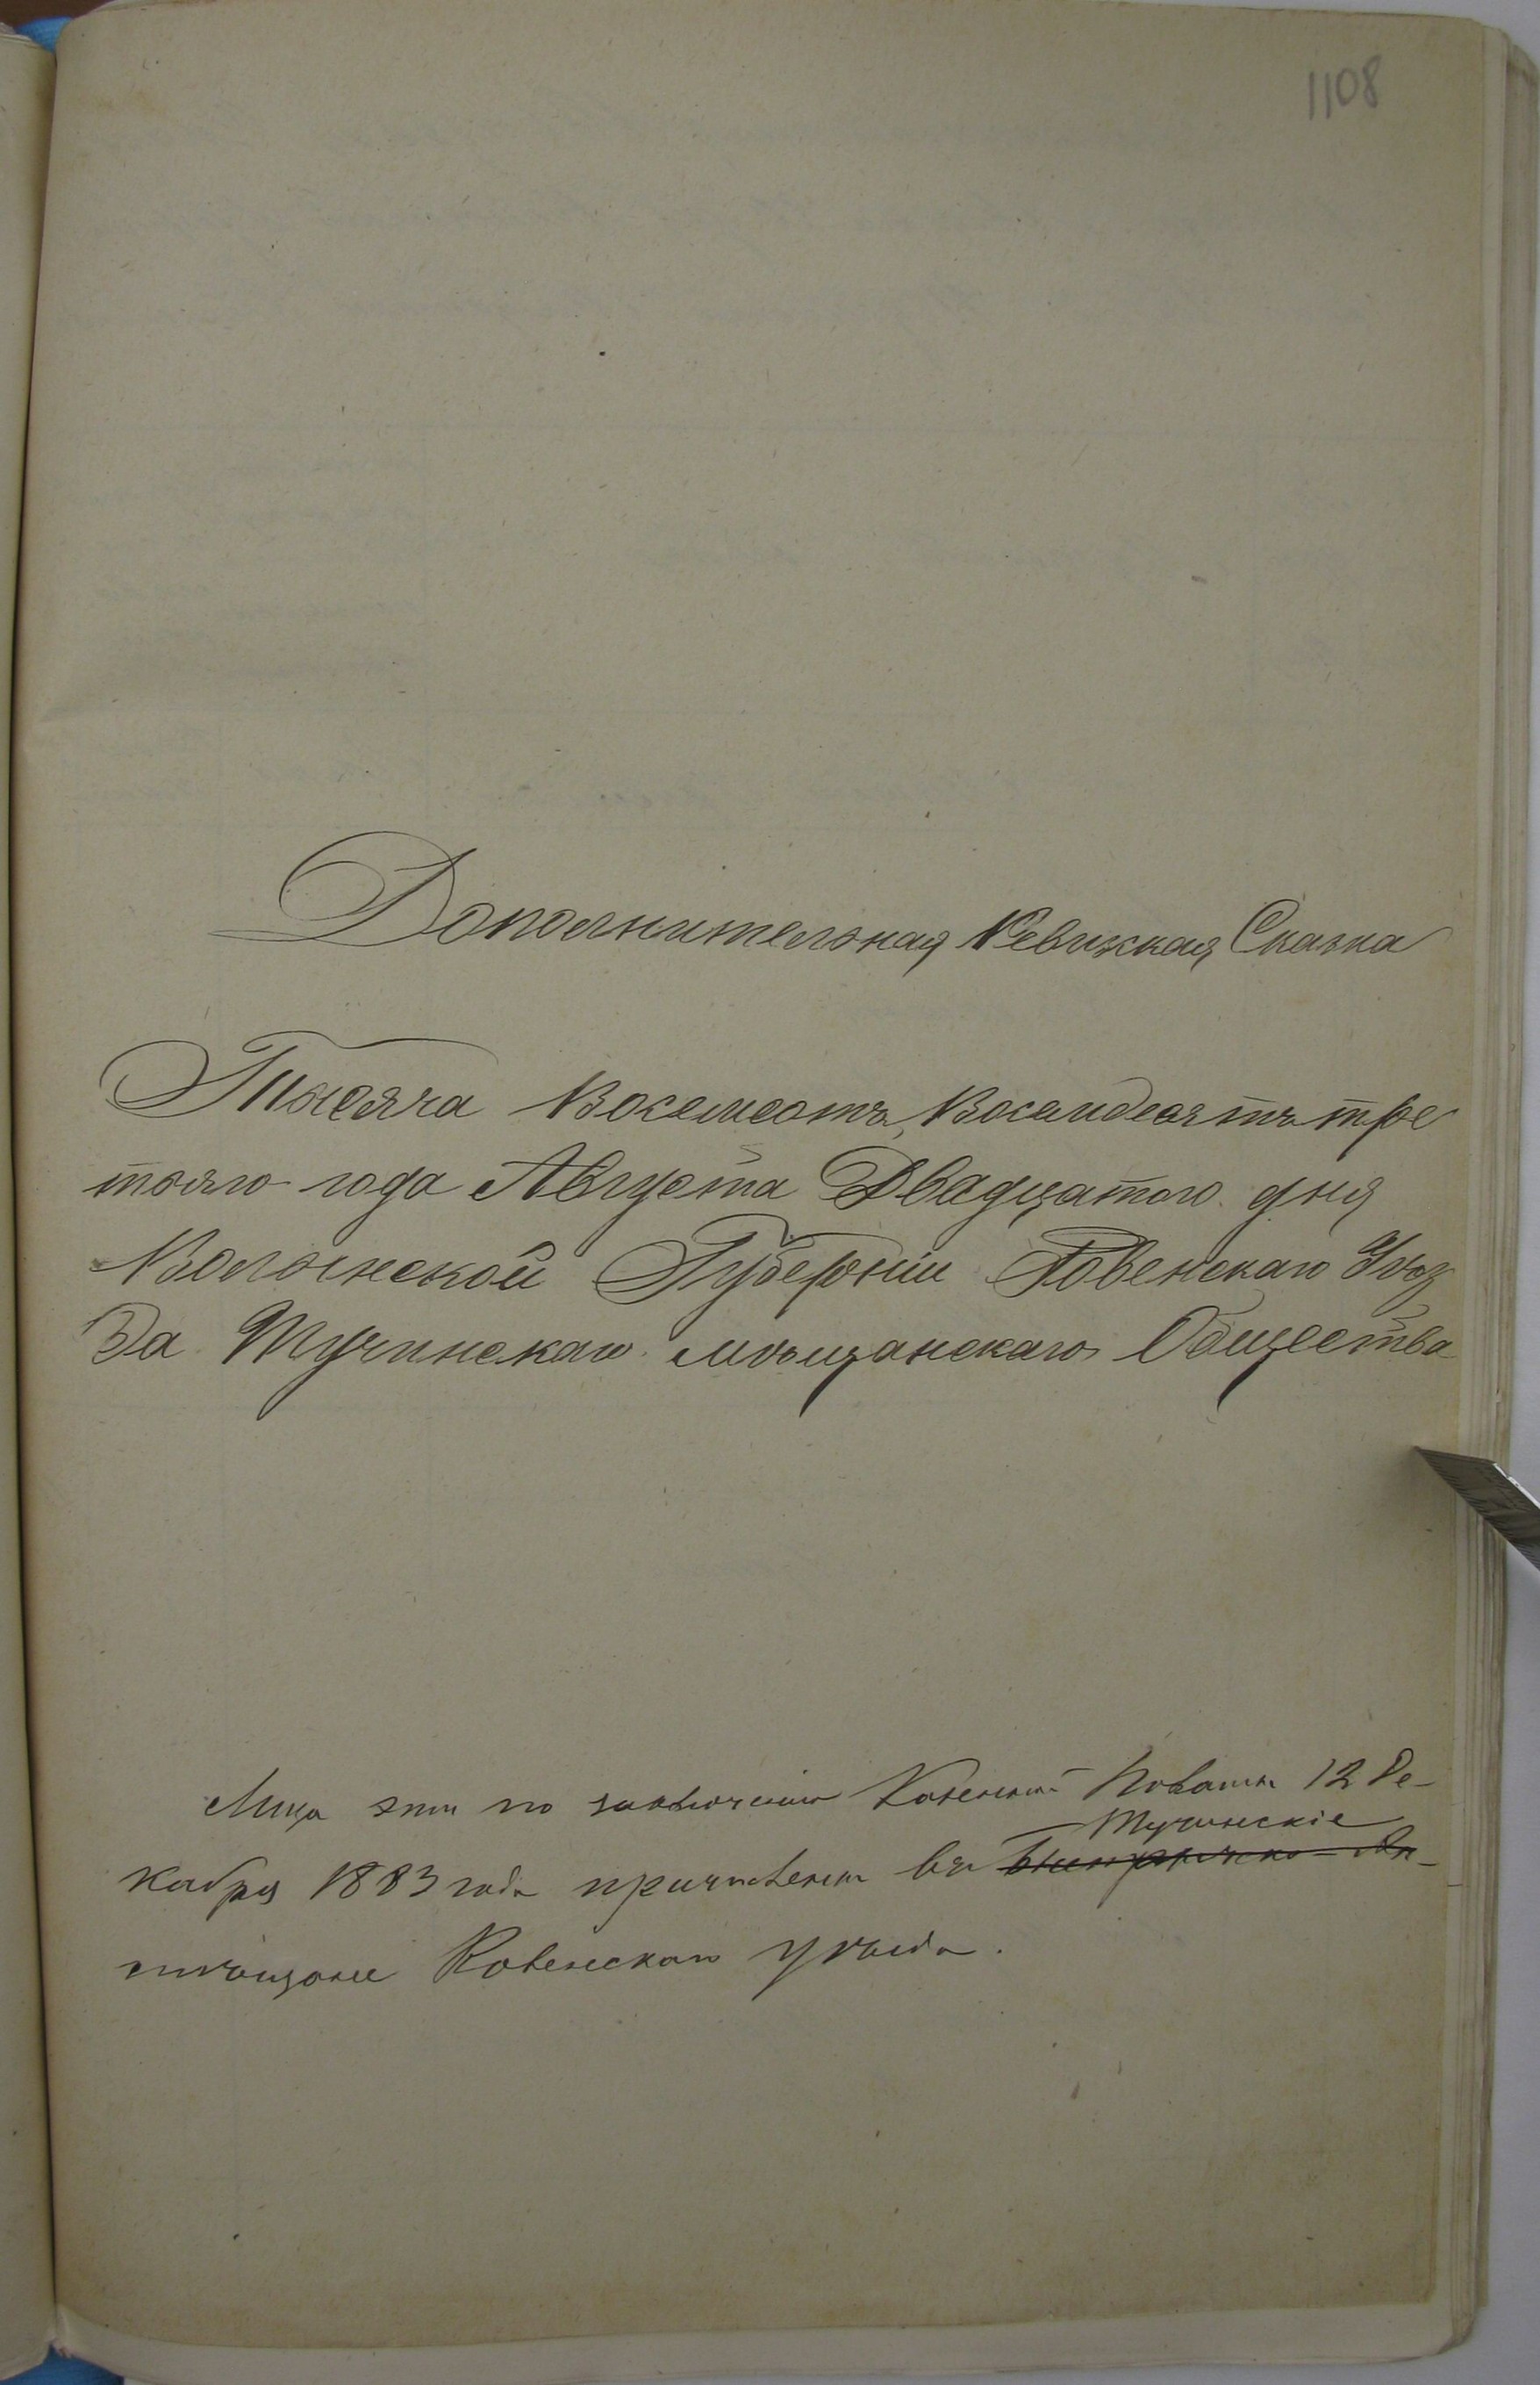 1108
Дополнительная Ревижская Сказка
Тысяча Восемсотъ Восемдесятъ тре
тьяго года Августа Двадцатого дня
Волынской Губерніи Ровенскаго Уѣз
да Тучинскаго мѣщанскаго Общества
Лица эти по заключенію Казенной Палаты 12 Де-
Тучинскіе
кабря 1883 года причислены въ
мѣщане Ровенскаго уѣзда.